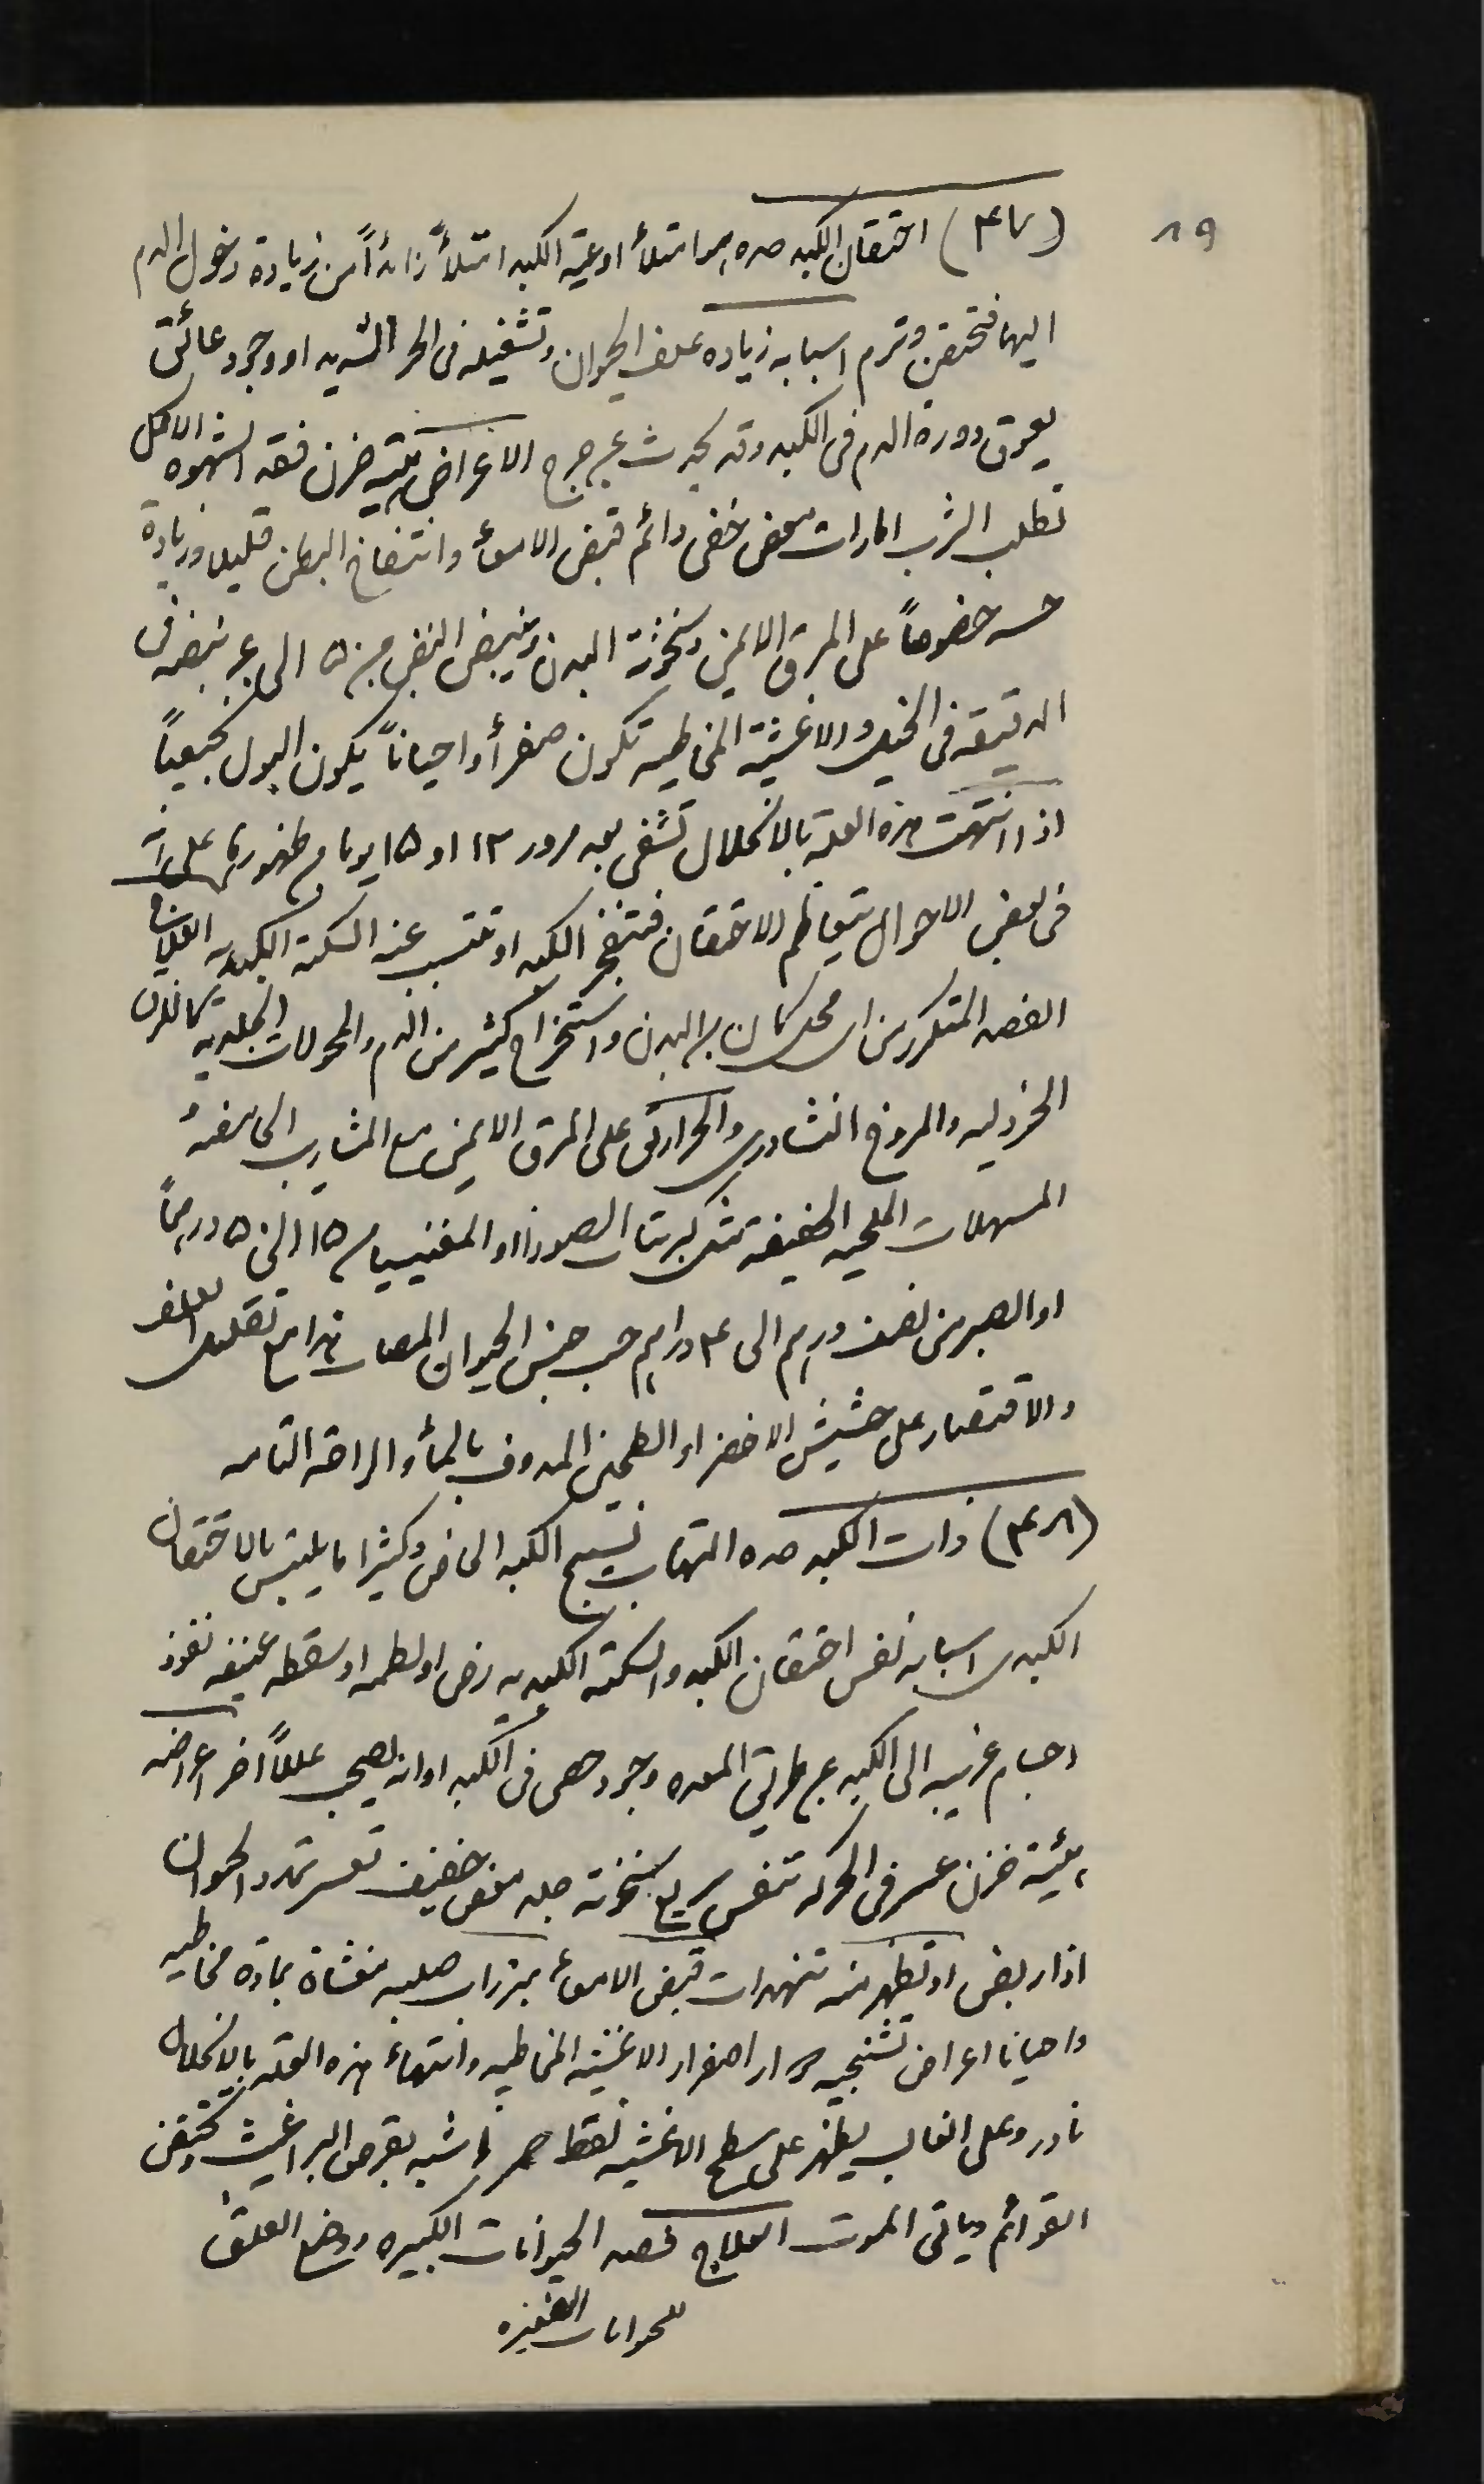 ١٩
(٣٤٧) احتقان الكبد حده هو امتلأ اوعية الكبد امتلأً زائداً من زيادة دخول الدم
اليها فتحتقن وترم اسبابه زيادة علف الحيوان وتشغيله فى الحر الشديد او وجود عائق
يعوق دورة الدم فى الكبد وقد يحدث عن جرح الاعراض هيئة حزن فقد لشهوة الاكل
تطلب الشرب امارات مغص خفى دائم قبض الامعأ وانتفاخ البطن قليلا وزيادة
حسه خصوصاً على المرق الايمن وسخونة البدن وينبض النبض من ٥٠ الى نبضه فى
الدقيقه فى الخيل والاغشية المخاطيه تكون صفرأ واحياناً يكون البول
اذا انتهت هذه العلة بالانحلال تشفى بعد مرور ١٢ او ١٥ يوما من ظهورها على انه
فى بعض الاحوال يتعاظم الاحتقان فتنفجر الكبد او تتسبب عنه السكتة الكبديه العلاج
الفصد المتكرر من اى محل كان من البدن واستخراج كثير من الدم والمحولات الجلديه
الخردليه والمروخ النشادرى والحراريق على المرق الايمن مع المشارب الحامضه
المسهلات الملحيه الخفيفة مثل كبريتات الصودا او المغنيسيا من ١٥ الى ٥٠ درهماً
او الصبر من نصف درهم الى ٤ دراهم حسب جنس الحيوان المصاب هذا مع تقليل العلف
والاقتصار على حشيش الاخضر او الطحين المدوف بالمأ والراحة التامه
(٣٤٨) ذات الكبد حده التهاب نسيج الكبد الخاص وكثيرا ما يلتبس بالاحتقان
الكبدى اسبابه نفس احتقان الكبد والسكتة الكبديه رض او لطمه او سقطه عنيفه نفوذ
اجسام غريبه الى الكبد عن طريق المعده وجود حصى فى الكبد او انه يصحب عللاً اخر اعراضه
هيئة حزن عسر فى الحركه تنفس سريع سخونة جلد مغص خفيف تعسر تمدد الحيوان
اذا ربض او تظهر منه تنهدات قبض الامعأ مبرزات صلبه مغشاة بمادة مخاطيه
واحيانا اعراض تشنجيه اصفرار الاغشيه المخاطيه وانتهاء هذه العله بالانحلال
نادر وعلى الغالب يظهر على سطح الاغشيه نقط حمر اشبه بقرص البراغيث وتحتقن
القوائم وياتى الموت العلاج فصد الحيوانات الكبيره ووضع العلق
للحيوانات الصغيره